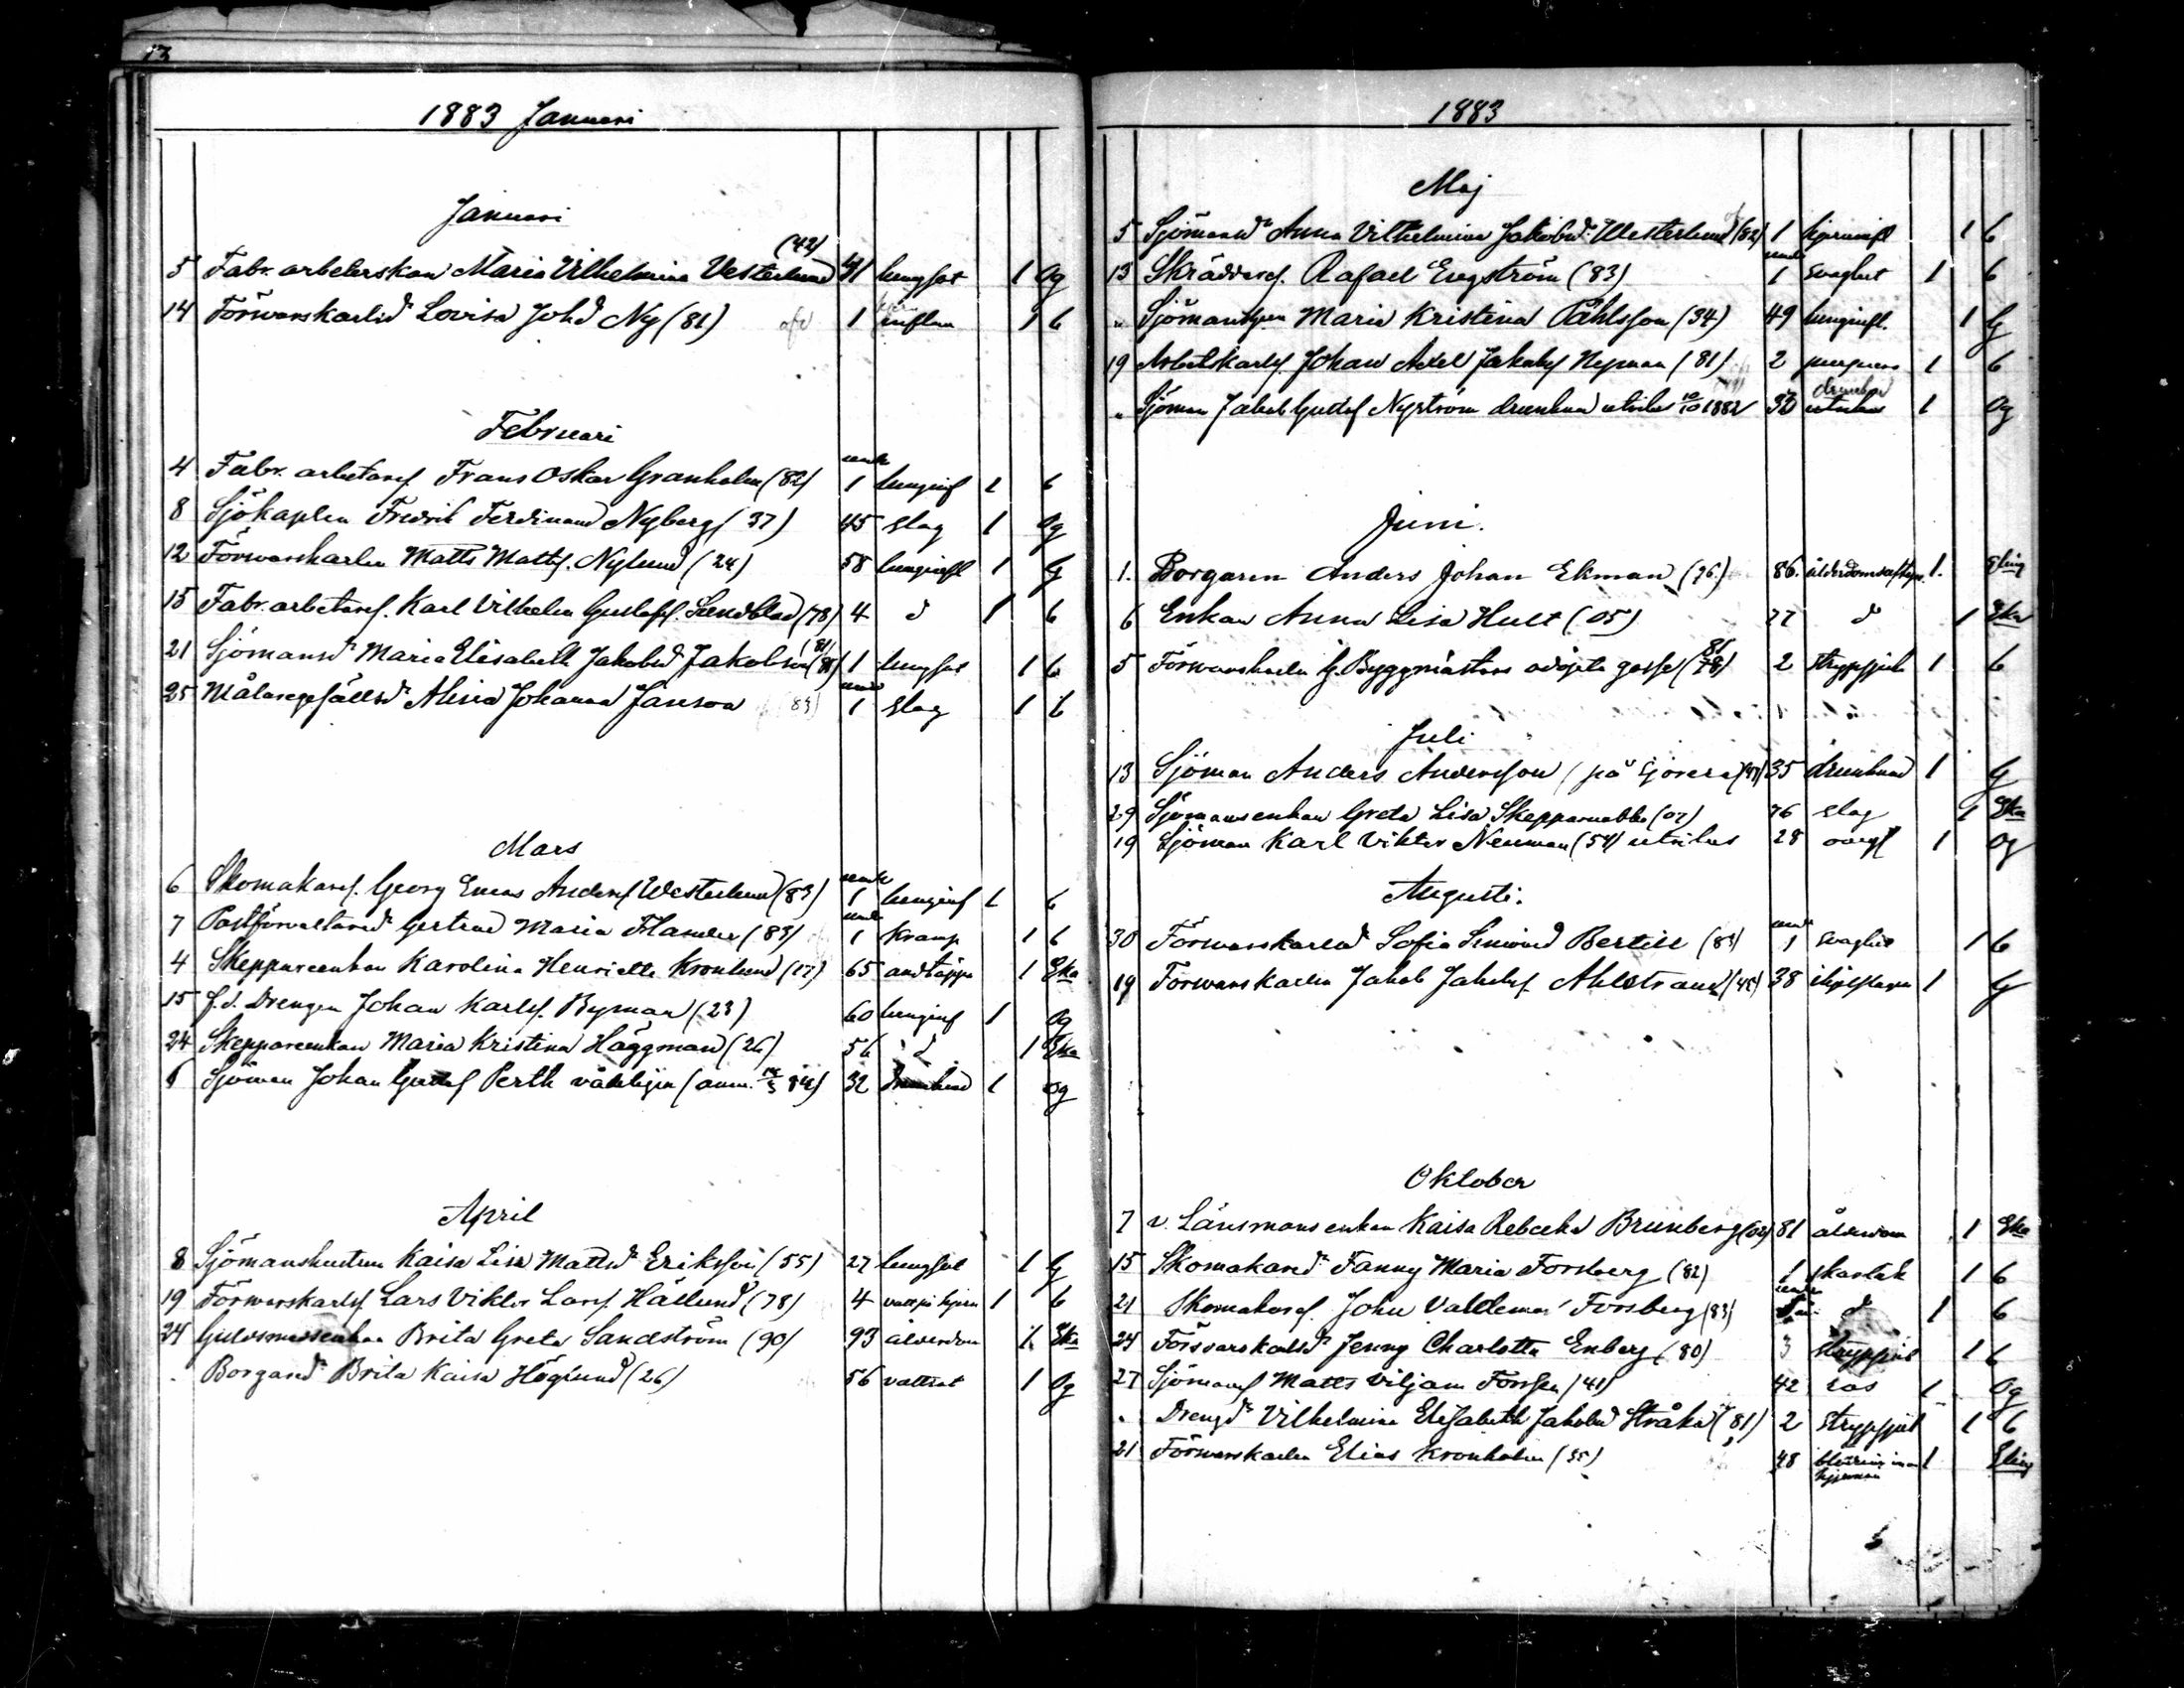 1883 Januari
Januari
(42)
5 Fabr. arbeterskan Maria Vilhelmina Vesterlund 41 lungsot 1 Og
14 Förvarskarlsd Lovisa Johd Ny (81) 1 inflam 1 b
Februari
under
4 Fabr. arbetaref Frans Oskar Granholm (82) 1 lunginf 1 b
8 Sjökapten Fredrik Ferdinand Nyberg (37) 45 slag 1 Og
12 Förvarskarlen Matts Mattsf. Nylund (24) 58 lunginfl 1 G
15 Fabr. arbetaref. Karl Vilhelm Gustafsf. Sandblad (78) 4 d 1 b
21 Sjömansd Maria Elisabeth Jakobsd Jakobson (81) 1 lungsot 1 b
under
25 Målaregesällsd Alina Johanna Janson (83) 1 slag 1 b
Mars
under
6 Skomakaref. Georg Eneas Andersf Westerlund (83) 1 lunginf 1 b
under
7 Postförvaltared Gertrud Maria (83) 1 Kramp 1 b
4 Skepparenkan Karolina Henrietta Kronlund (17) 65 andtäppa 1 Eka
15 f.d. Drengen Johan Karlsf. Byman (23) 60 lunginf 1 Og
24 Skepparenkan Maria Kristina Häggman (26) 56 d 1 Eka
6 Sjöman Johan Gustaf Perth (anm. 84) 32 drunknad 1 Og
April
8 Sjömanshustrun Kaisa Lisa Mattsd Eriksson (55) 27 lungsot 1 G
19 Förvarskarlsf. Lars Viktor Larsf. Hällund (78) 4 vatt på hjern 1 b
24 Brita Greta Sandström (90) 93 ålderdom 1 Eka
Borgared Brita Kaisa Höglund (26) 56 vattsot 1 Og
1883
Maj
5 Sjömansd Anna Vilhelmina Jakobsd Westerlund (82) 1 hjerninfl 1 b
under
13 Skräddaref. Rafael Engström (83) 1 svaghet 1 b
" Maria Kristina Påhlsson (34) 49 lunginfl. 1 G
19 Arbetskarlsf. Johan Axel Jakobsf Nyman (81) 2 1 b
drunknad
" Sjöman Jakob Gustaf Nyström drunknad utrikes 10/10 1882 32 utrikes 1 Og
Juni.
1. Borgaren Anders Johan Ekman (96.) 86. 1. Eling
6 Enkan Anna Lisa Hult (05) 77 d 1 Eka
81
5 Förvarskarlen G. Byggmästars adopta gosse (78) 2 strypsjuk 1 b
Juli
13 Sjöman Anders Andersson (på Sjöresa) 35 drunknad 1 G
29 Sjömansenkan Greta Lisa Skepparnabba (07) 76 slag 1 Eka
19 Sjöman Karl Viktor Neuman (54) utrikes 28 1 Og
Augusti.
under
30 Förvarskarlsd Sofia Bertill (83) 1 svaghet 1 b
19 Förvarskarlen Jakob Jakobsf. Ahlstrand (45) 38 1 G
Oktober
7 v. Länsmansenkan Kaisa Rebecka Brunberg (02) 81 ålderdom 1 Eka
15 Skomakared Fanny Maria Forsberg (82) 1 skarlak 1 b
under
21 Skomakaref. John Valdemar Forsberg (83) d 1 b
24 Försvarskarlsd Jenny Charlotta Enberg (80) 3 strypsjuk 1 b
27 Sjömanf Matts Viljam Forssen (41) 42 ros 1 Og
" Drengd Vilhelmina Elisabeth Jakobsd Stråka (81) 2 strypsjuk 1 b
21 Förvarskarlen Elias Kronholm (35) 48 blödning inom 1 Eling
hjernan